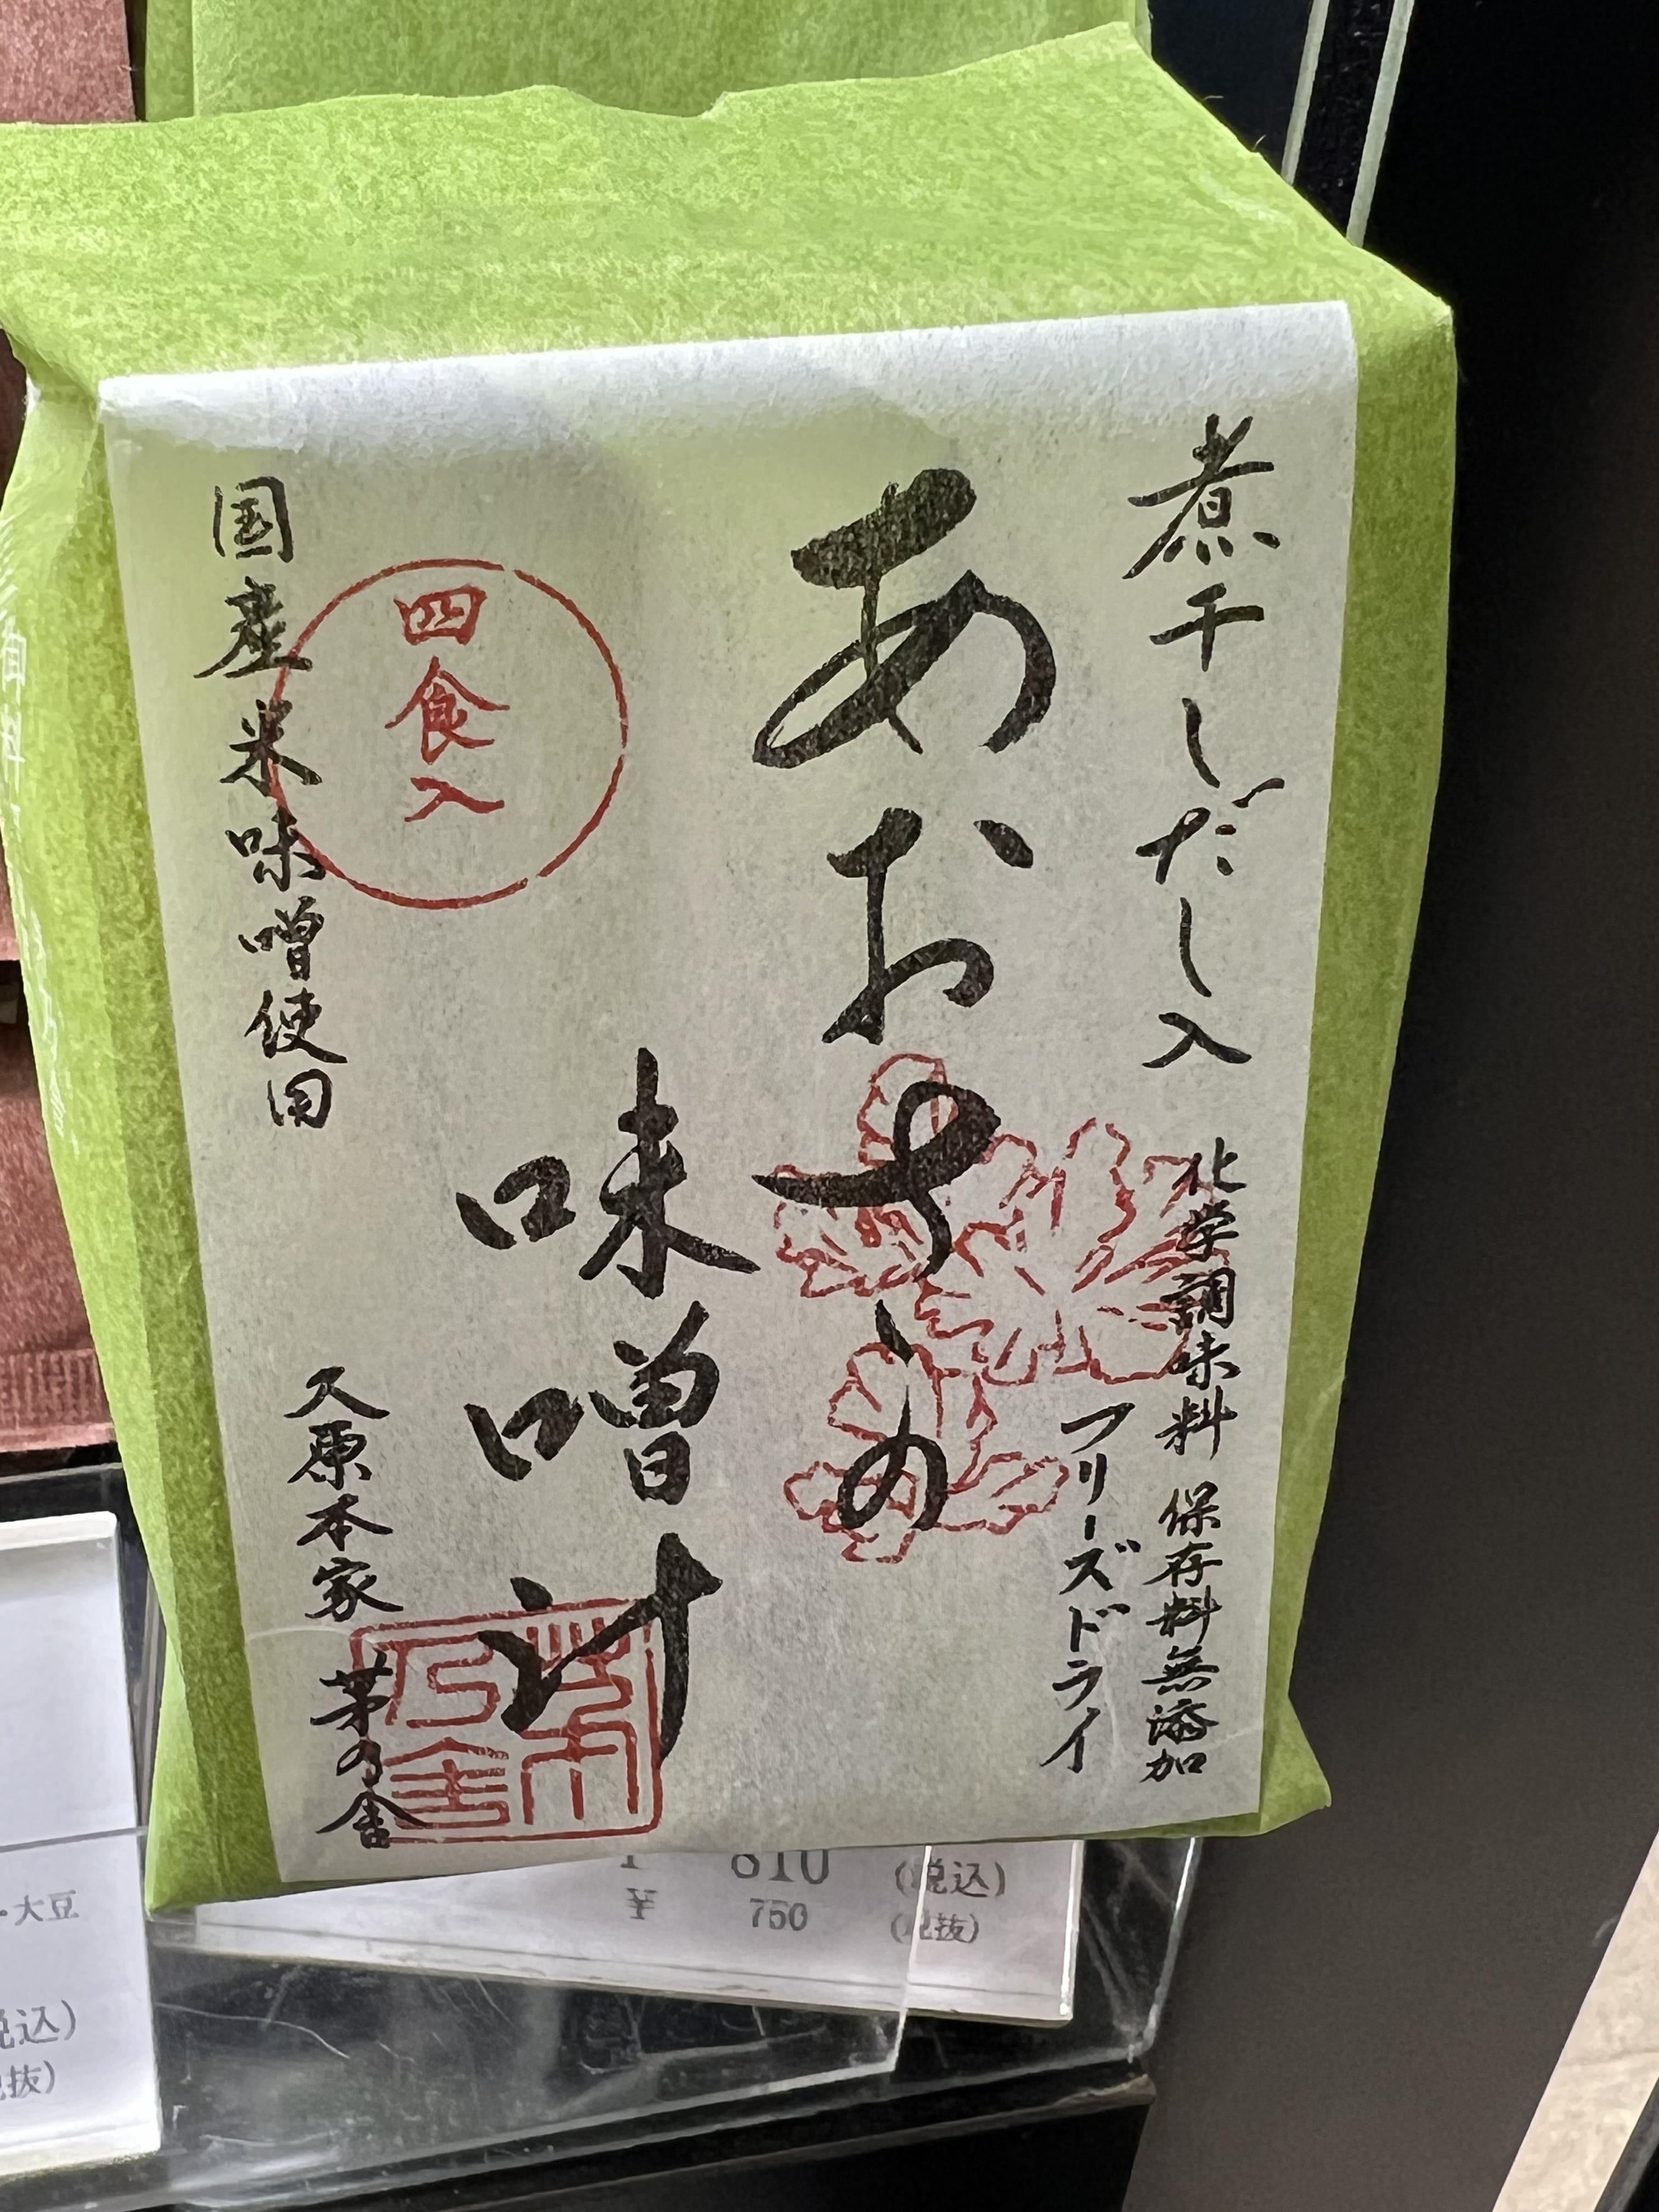 煮干しだし入
化学調味料 保存料無添加
フリーズドライ
あおさの
味噌汁
四食入
国産米味噌使用
久原本家 茅の舎
茅乃舎
810 (税込)
¥ 750 (税抜)
・大豆
税込)
税抜)